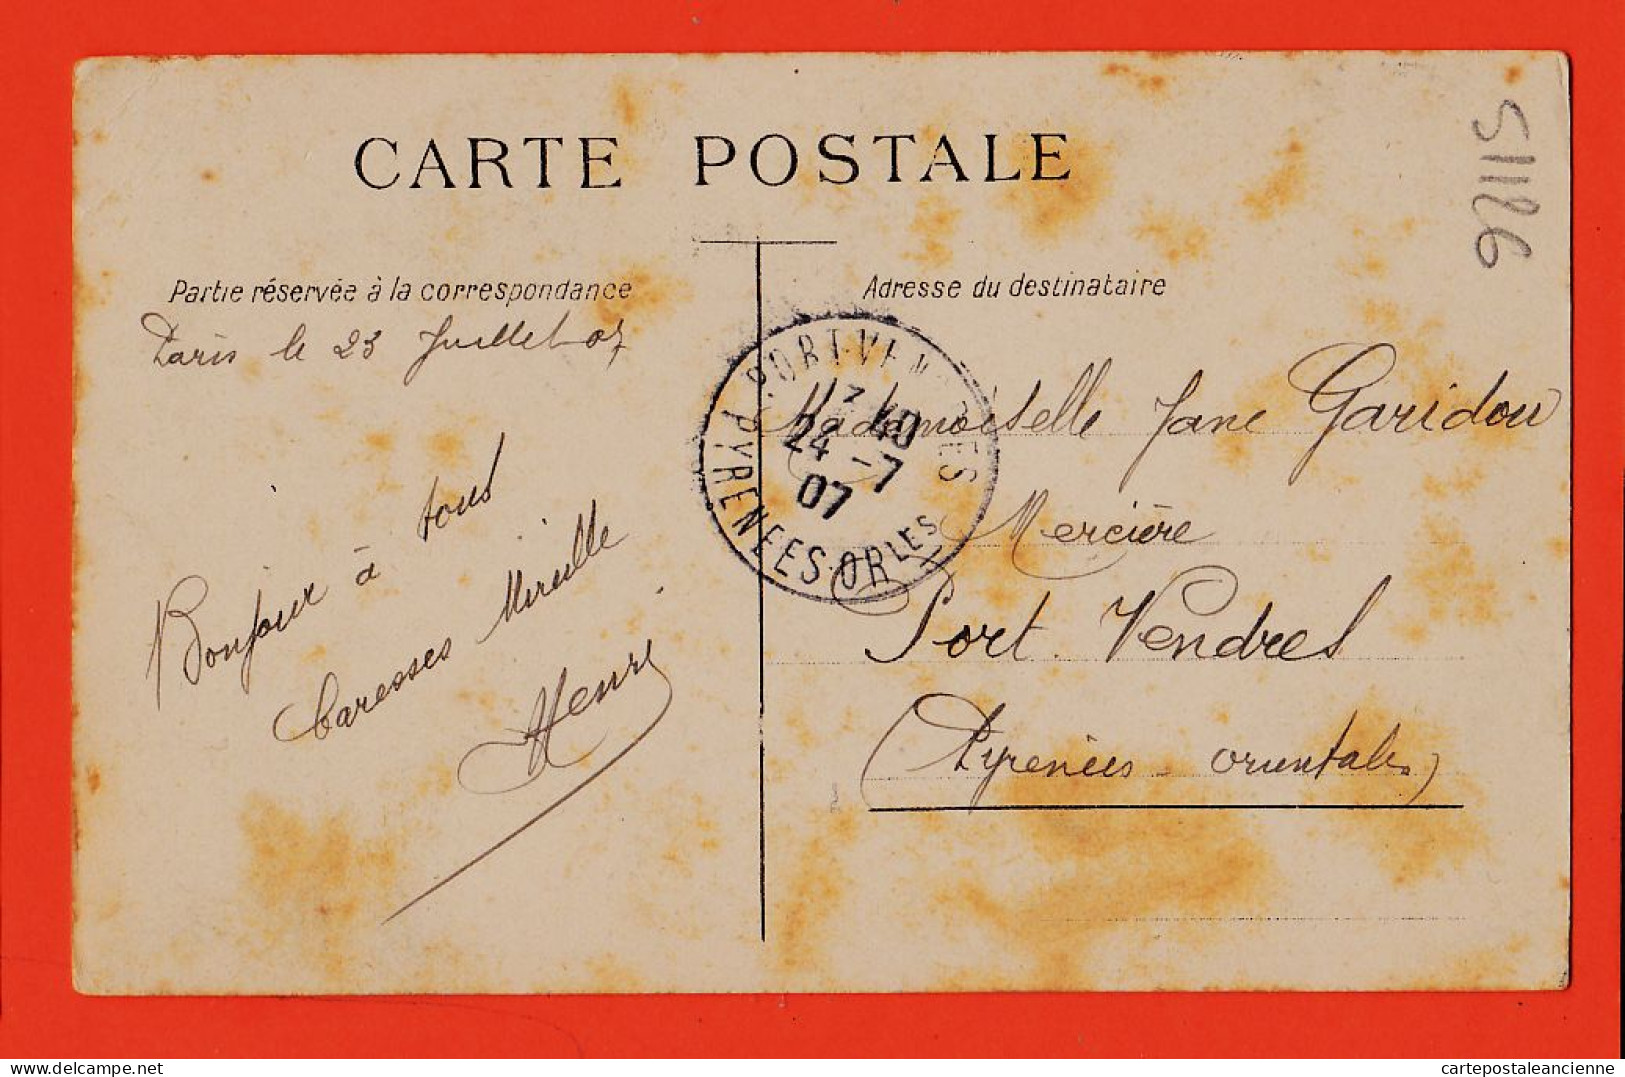 CARTE POSTALE
51126
Partie réservée à la correspondance
Paris le 23 Juillet 07
Bonjour à tous
Caresses Mireille
Henri
Adresse du destinataire
PORT-VENDRES
7 40
24 - 7
07
PYRENEES-ORLES
Mademoiselle Jane Garidou
Mercière
Port Vendres
(Pyrénées - orientales)
cartepostaleancienne.com